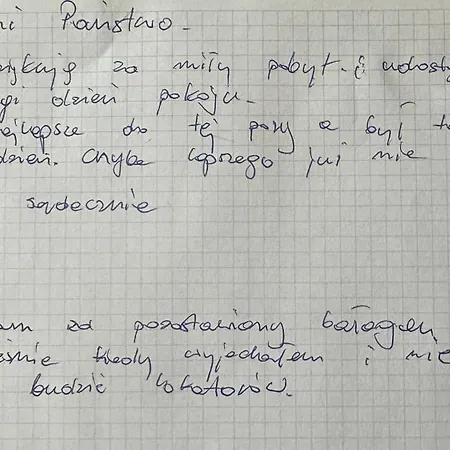 ni Państwo.
ękuję za miły pobyt i udostę
gi dzień pokoju.
ajlepsze do tej pory a był t
dzień. Chyba lepszego już nie
sądecznie
am za pozostawiony bałagan
eśnie kiedy wyjechałem i nie
budzić lokatorów.